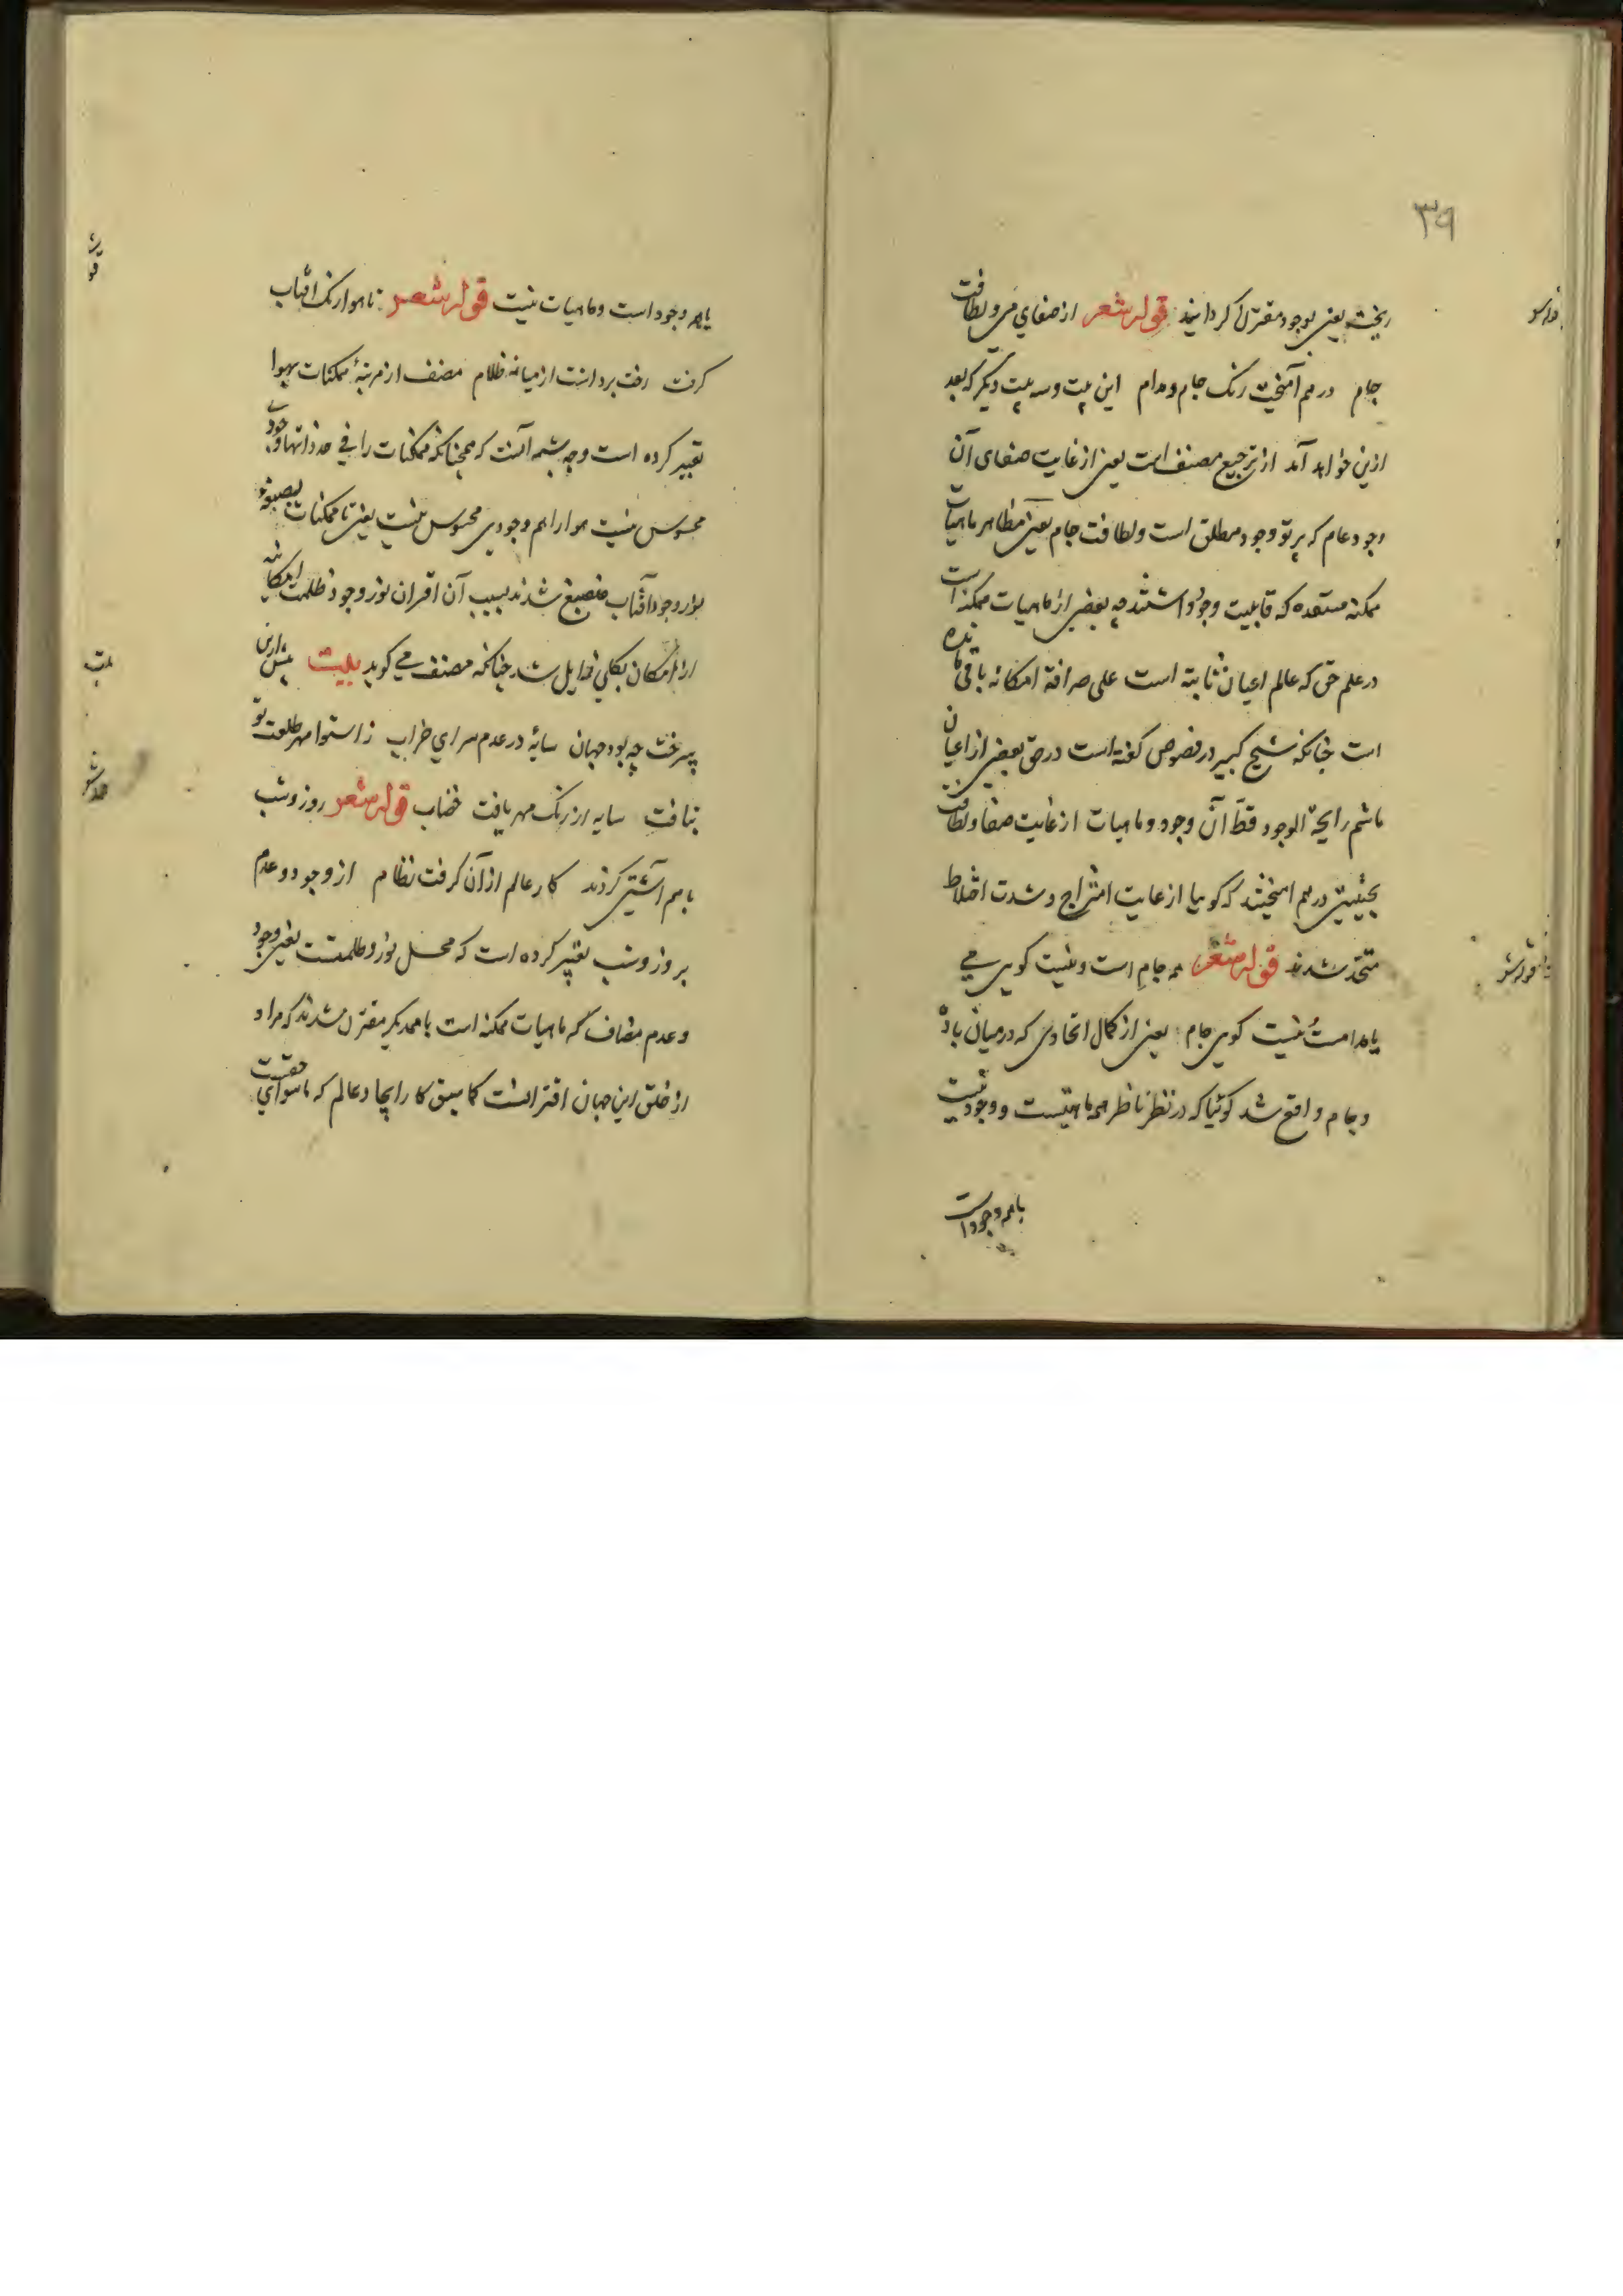 ۳۹
ریخت یعنی بوجود مقترن گردانید قوله شعر از صفای می و لطافت
جام در هم آمیخت رنگ جام و مدام این بیت و سه بیت دیگر که بعد
ازین خواهد آمد از ترجیع مصنف است یعنی از غایت صفای آن
وجود عام که پرتو وجود مطلق است و لطافت جام یعنی مظاهر ماهیات
ممکنه مستعده که قابلیت وجود داشتند چه بعضی از ماهیات ممکنه است
در علم حق که عالم اعیان ثابته است علی صرافة امکانه باقی مانده
است چنانکه شیخ کبیر در فصوص گفته است در حق بعضی از اعیان
ماشم رایحة الوجود قط آن وجود و ماهیات از غایت صفا و لطافت
بحیثیتی در هم امیختند که گوییا از غایت امتزاج و شدت اختلاط
متحد شدند قوله شعر همه جام است و نیست گویی می
یا مدامست نیست گویی جام یعنی از کمال اتحادی که درمیان باده
و جام واقع شد گوئیا که در نظر ناظر همه ماهیتست و وجود نیست
یا همه وجود است
یا همه وجود است و ماهیات نیست قوله شعر تا هوا رنگ افتاب
گرفت رخت برداشت از میانه ظلام مصنف از مرتبهٔ ممکنات بهوا
تعبیر کرده است وجه شبه آنست که همچنانکه ممکنات را فی حد ذاتها وجود
محسوس نیست هوا را هم وجودی محسوس نیست یعنی تا ممکنات بصبغهٔ
نور وجود آفتاب منصبغ شدند بسبب آن اقتران نور وجود ظلمت امکانیه
از امکان بکلی زایل شد چنانکه مصنف می گوید بیت پیش ازین
پیرخت چه بود جهان سایهٔ در عدم سرای خراب ز استوا مهر طلعت تو
بتافت سایه از رنگ مهر یافت خضاب قوله شعر روز و شب
با هم آشتی کردند کار عالم از آن گرفت نظام از وجود و عدم
بروز و شب تعبیر کرده است که محل نور و ظلمتست یعنی وجود
و عدم مضاف که ماهیات ممکنه است با همدیگر مقترن شدند که مراد
از خلق این جهان اقترانست کما سبق کار ایجاد عالم که ماسوای حقست